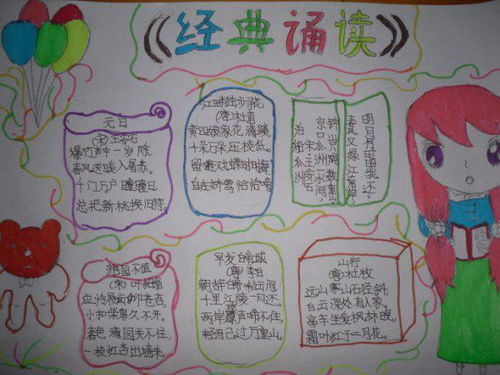 《经典诵读》
元日
(宋)王安石
爆竹声中一岁除
春风送暖入屠苏。
千门万户曈曈日
总把新桃换旧符。
江畔独步寻花
(唐)杜甫
黄四娘家花满蹊
千朵万朵压枝低。
留连戏蝶时时舞
自在娇莺恰恰啼
泊船瓜洲
京口瓜洲一水间
钟山只隔数重山
春风又绿江南岸
明月何时照我还。
游园不值
(宋)叶绍翁
应怜屐齿印苍苔
小扣柴扉久不开。
春色满园关不住,
一枝红杏出墙来。
早发白帝城
(唐)李白
朝辞白帝彩云间
千里江陵一日还。
两岸猿声啼不住,
轻舟已过万重山。
山行
(唐)杜牧
远上寒山石径斜
白云深处有人家。
停车坐爱枫林晚
霜叶红于二月花。